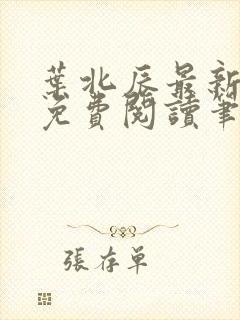 葉北辰最新
免費閱讀筆
張存單